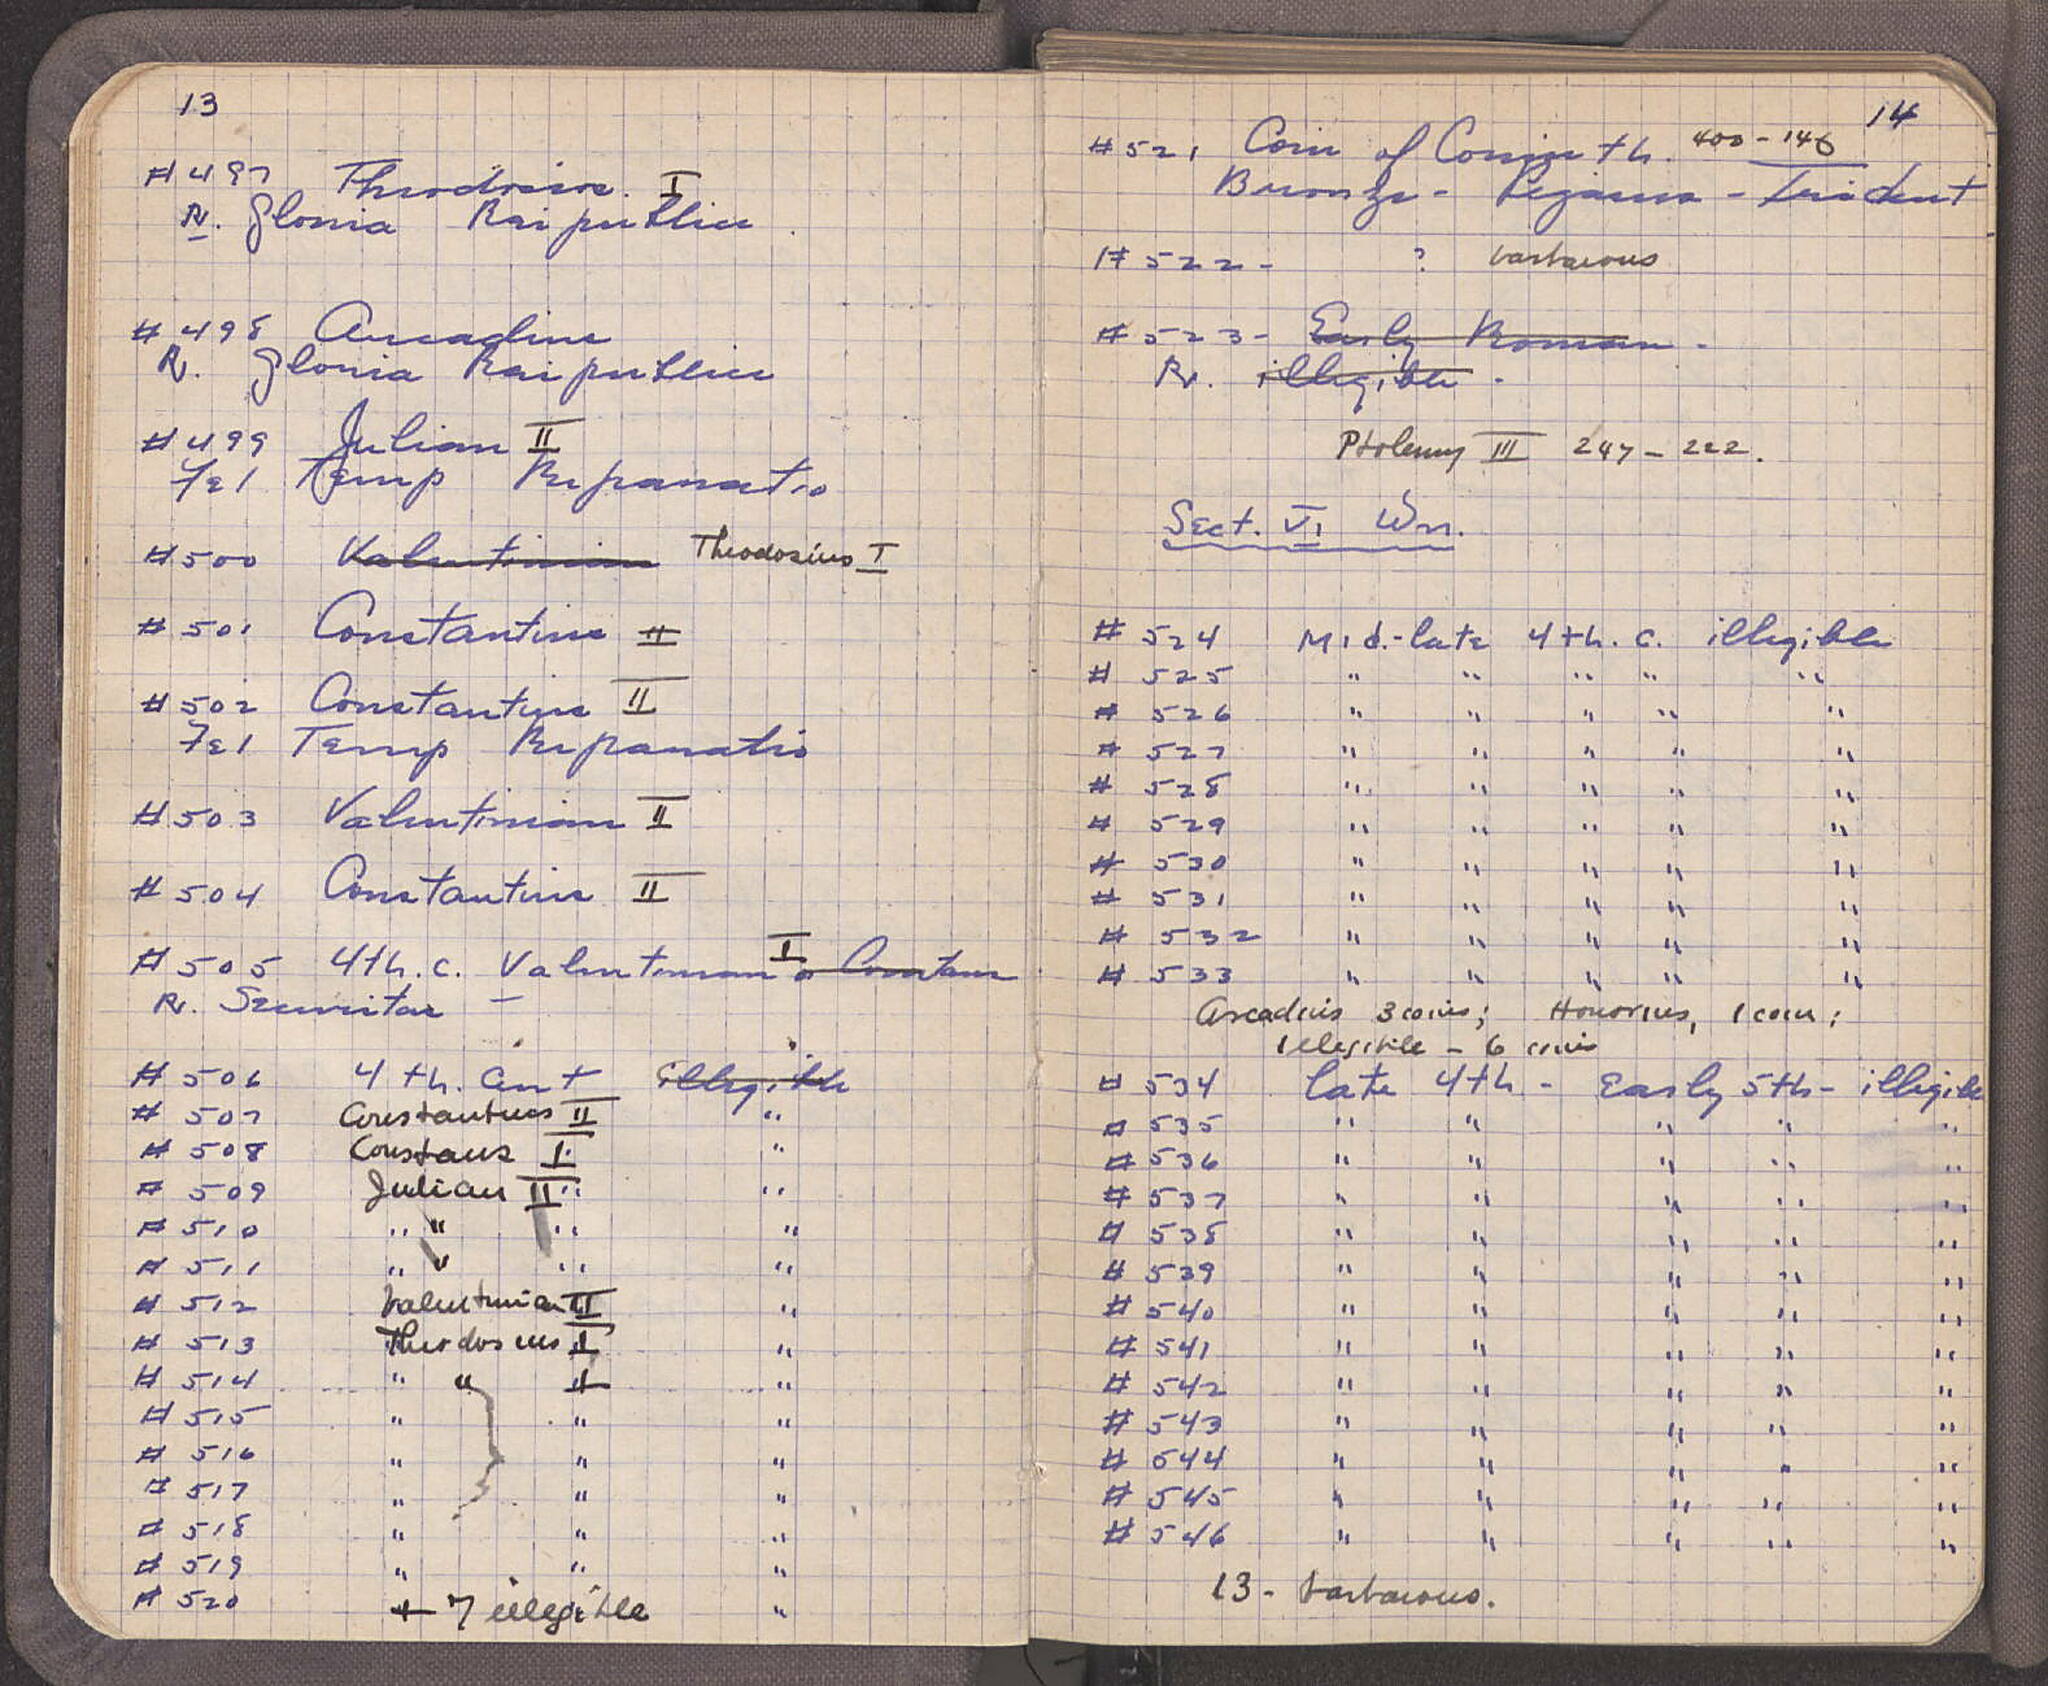 13
#497 Theodosius. I
R. Gloria Reipublice
#498 Arcadius
R. Gloria Reipublice
#499 Julian II
Fel Temp Reparatio
#500 Valentinian Theodosius I
#501 Constantius II
#502 Constantius II
Fel Temp Reparatio
#503 Valentinian II
#504 Constantius II
#505 4th. c. Valentinian I or Constans
R. Securitas –
#506 4th. cent illegible
#507 Constantius II "
#508 Constans I "
#509 Julian II " "
#510 " " " "
#511 " " " "
#512 Valentinian II "
#513 Theodosius I "
#514 " " I "
#515 " " "
#516 " " "
#517 " " "
#518 " " "
#519 " " "
#520 + 7 illegible "
14
#521 Coin of Corinth. 400-146
Bronze - Pegasus - Trident
#522 - ? barbarous
#523 - Early Roman -
R. illegible -
Ptolemy III 247-222.
Sect. VI Wn.
# 524 Mid.-late 4th. c. illegible
# 525 " " " " "
# 526 " " " " "
# 527 " " " " "
# 528 " " " " "
# 529 " " " " "
# 530 " " " " "
# 531 " " " " "
# 532 " " " " "
# 533 " " " " "
Arcadius 3 coins; Honorius, 1 coin;
illegible - 6 coins
# 534 late 4th - Early 5th - illegible
# 535 " " " " "
# 536 " " " " "
# 537 " " " " "
# 538 " " " " "
# 539 " " " " "
# 540 " " " " "
# 541 " " " " "
# 542 " " " " "
# 543 " " " " "
# 544 " " " " "
# 545 " " " " "
# 546 " " " " "
13 - barbarous.